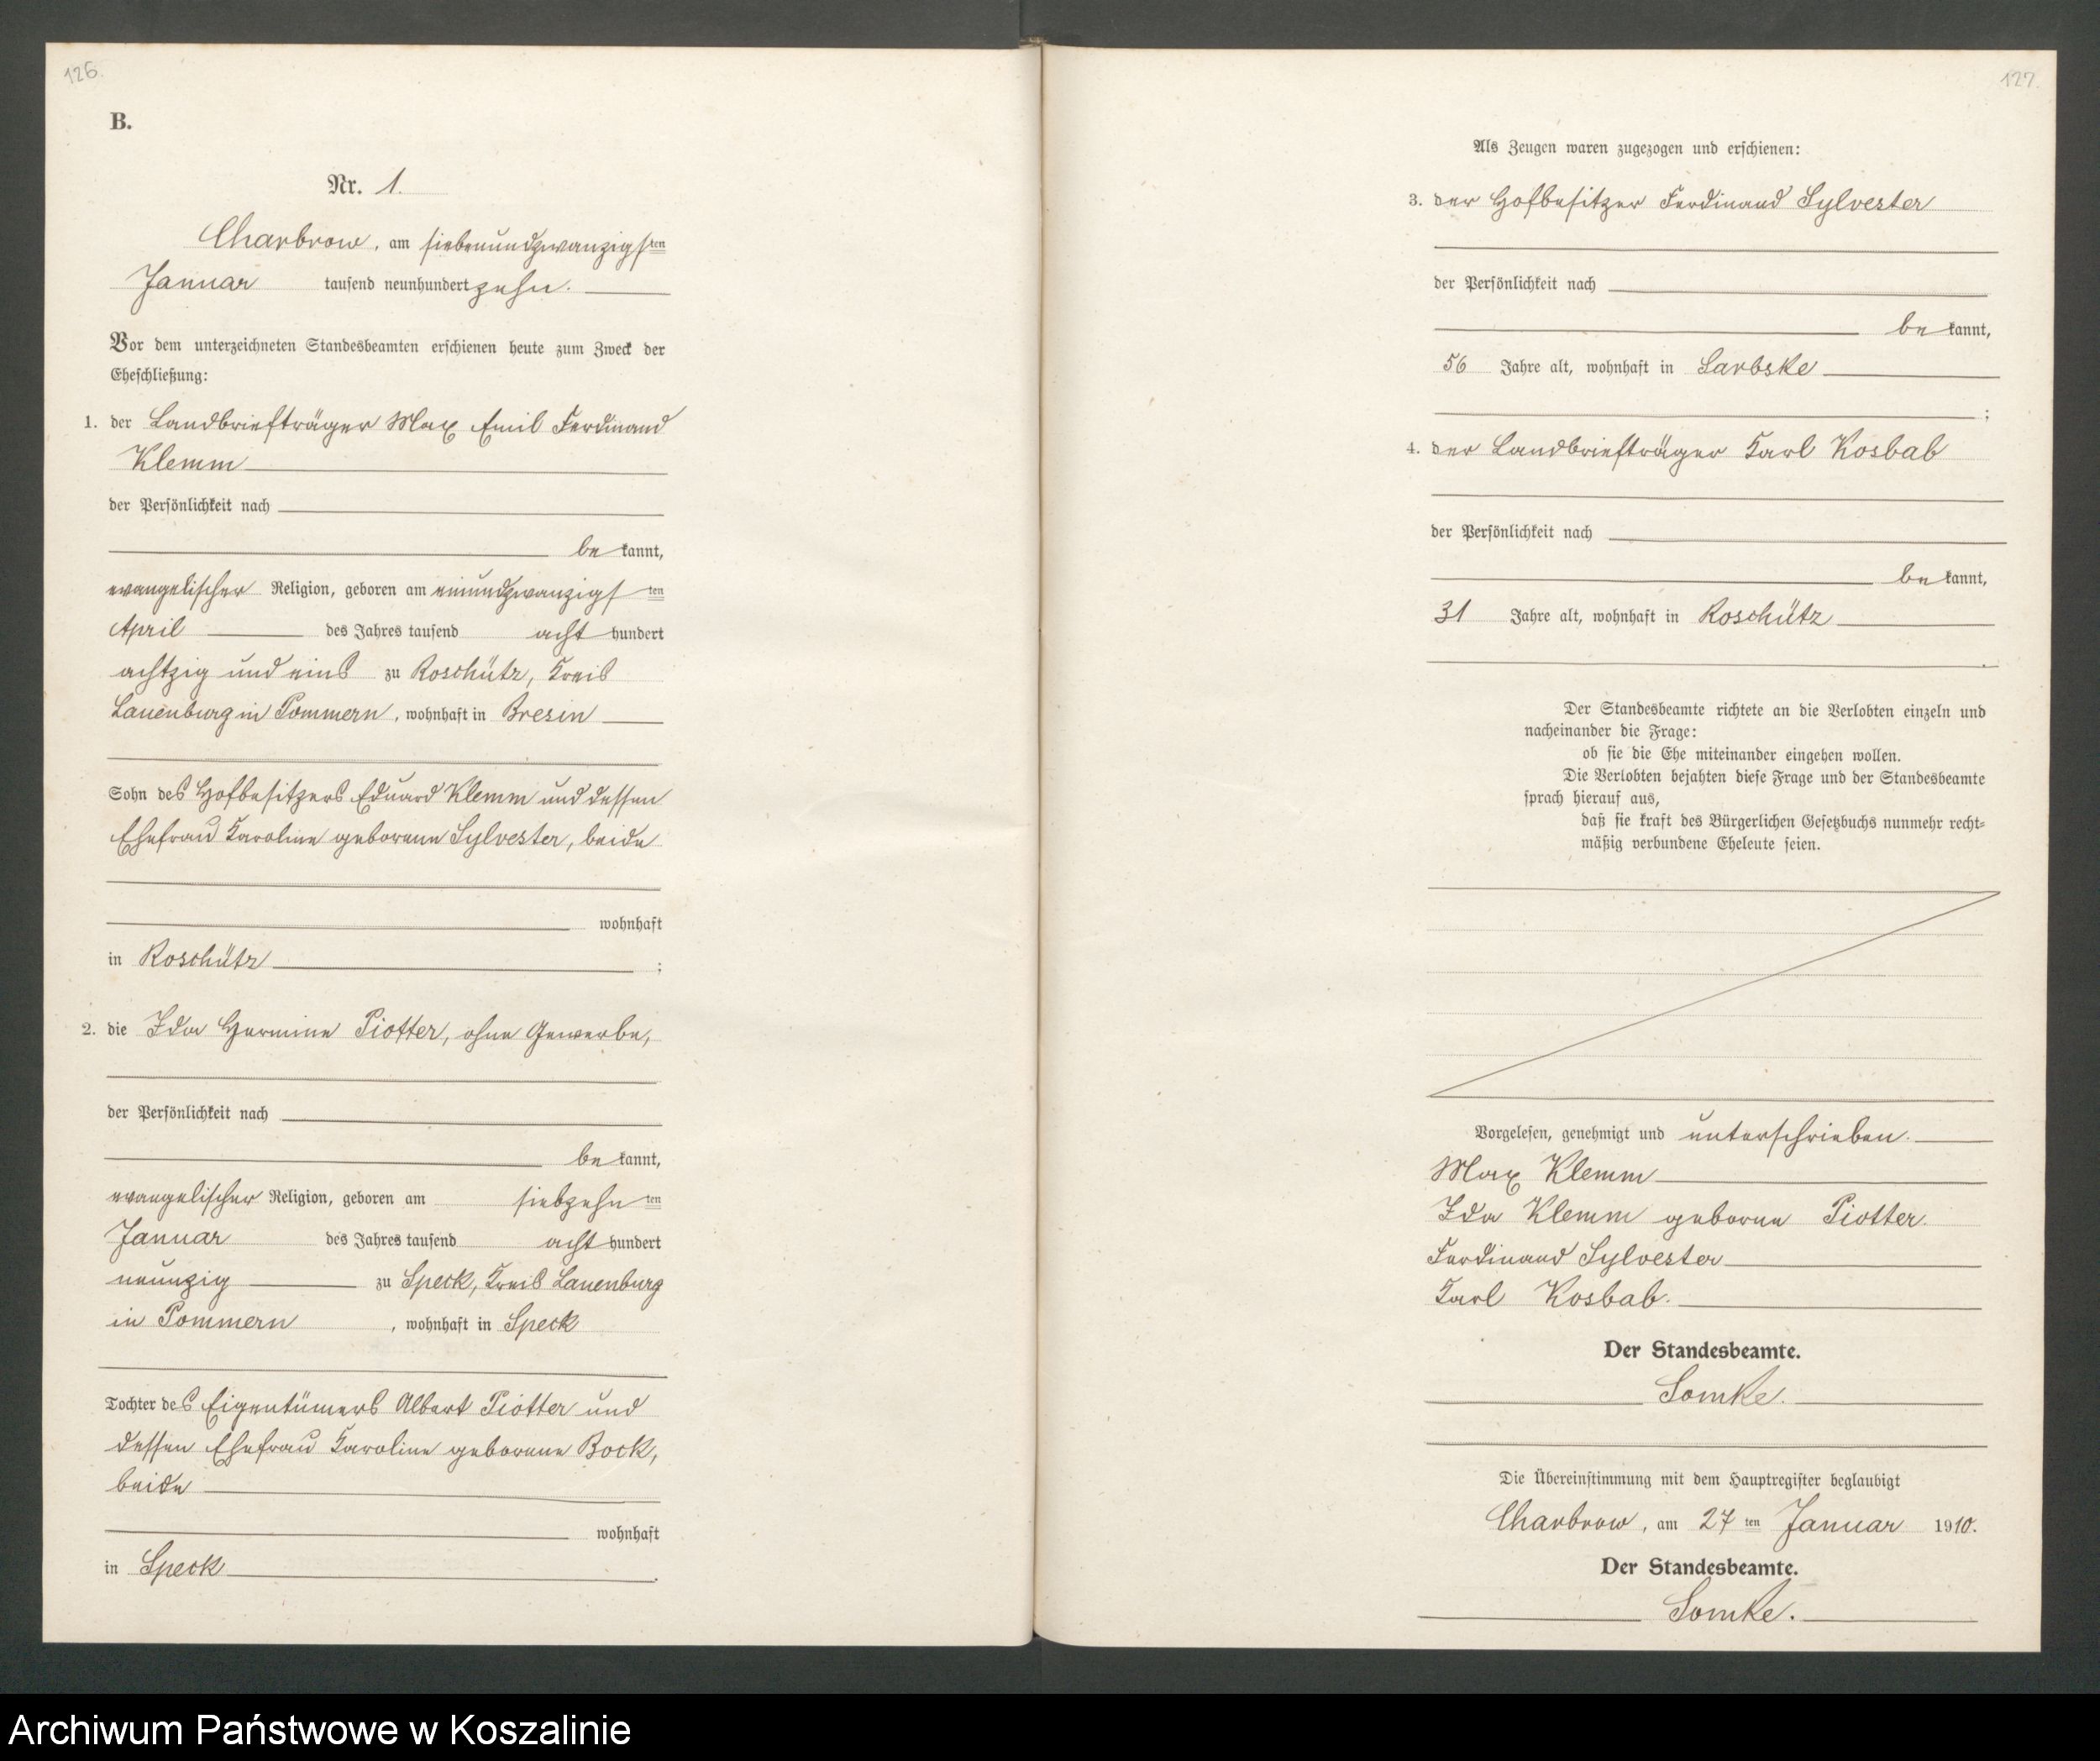 126.
B.
Nr. 1.
Charbrow, am siebenundzwanzigsten
Januar tausend neunhundert zehn.
Vor dem unterzeichneten Standesbeamten erschienen heute zum Zweck der
Eheschließung:
1. der Landbriefträger Max Emil Ferdinand
Klemm
der Persönlichkeit nach
be kannt,
evangelischer Religion, geboren am einundzwanzigsten
April des Jahres tausend acht hundert
achtzig und eins zu Roschütz, Kreis
Lauenburg in Pommern, wohnhaft in Bresin
Sohn des Hofbesitzers Eduard Klemm und dessen
Ehefrau Karoline geborene Sylvester, beide
wohnhaft
in Roschütz ;
2. die Ida Hermine Piotter, ohne Gewerbe,
der Persönlichkeit nach
be kannt,
evangelischer Religion, geboren am siebzehnten
Januar des Jahres tausend acht hundert
neunzig zu Speck, Kreis Lauenburg
in Pommern, wohnhaft in Speck
Tochter des Eigentümers Albert Piotter und
dessen Ehefrau Karoline geborene Bock,
beide
wohnhaft
in Speck .
127.
Als Zeugen waren zugezogen und erschienen:
3. der Hofbesitzer Ferdinand Sylvester
der Persönlichkeit nach
be kannt,
56 Jahre alt, wohnhaft in Sarbske
;
4. der Landbriefträger Karl Kosbab
der Persönlichkeit nach
be kannt,
31 Jahre alt, wohnhaft in Roschütz
.
Der Standesbeamte richtete an die Verlobten einzeln und
nacheinander die Frage:
ob sie die Ehe miteinander eingehen wollen.
Die Verlobten bejahten diese Frage und der Standesbeamte
sprach hierauf aus,
daß sie kraft des Bürgerlichen Gesetzbuchs nunmehr recht-
mäßig verbundene Eheleute seien.
Vorgelesen, genehmigt und unterschrieben.
Max Klemm
Ida Klemm geborne Piotter.
Ferdinand Sylvester
Karl Kosbab.
Der Standesbeamte.
Somke.
Die Übereinstimmung mit dem Hauptregister beglaubigt
Charbrow, am 27 ten Januar 1910.
Der Standesbeamte.
Somke.
Archiwum Państwowe w Koszalinie